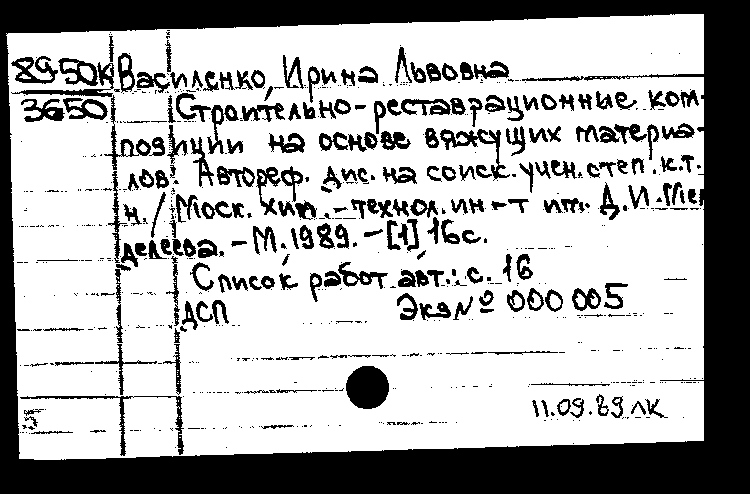 89-50К Василенко, Ирина Львовна
3650 Строительно-реставрационные ком-
позиции на основе вяжущих материа-
лов: Автореф. дис. на соиск. учен. степ. к.т.
н. / Моск. хим.-технол. ин-т им. Д.И. Мен
делеева. - М. 1989. - [1] 16с.
Список работ авт.: с. 16
ДСП Экз № 000 005
11.09.89 ЛК
5